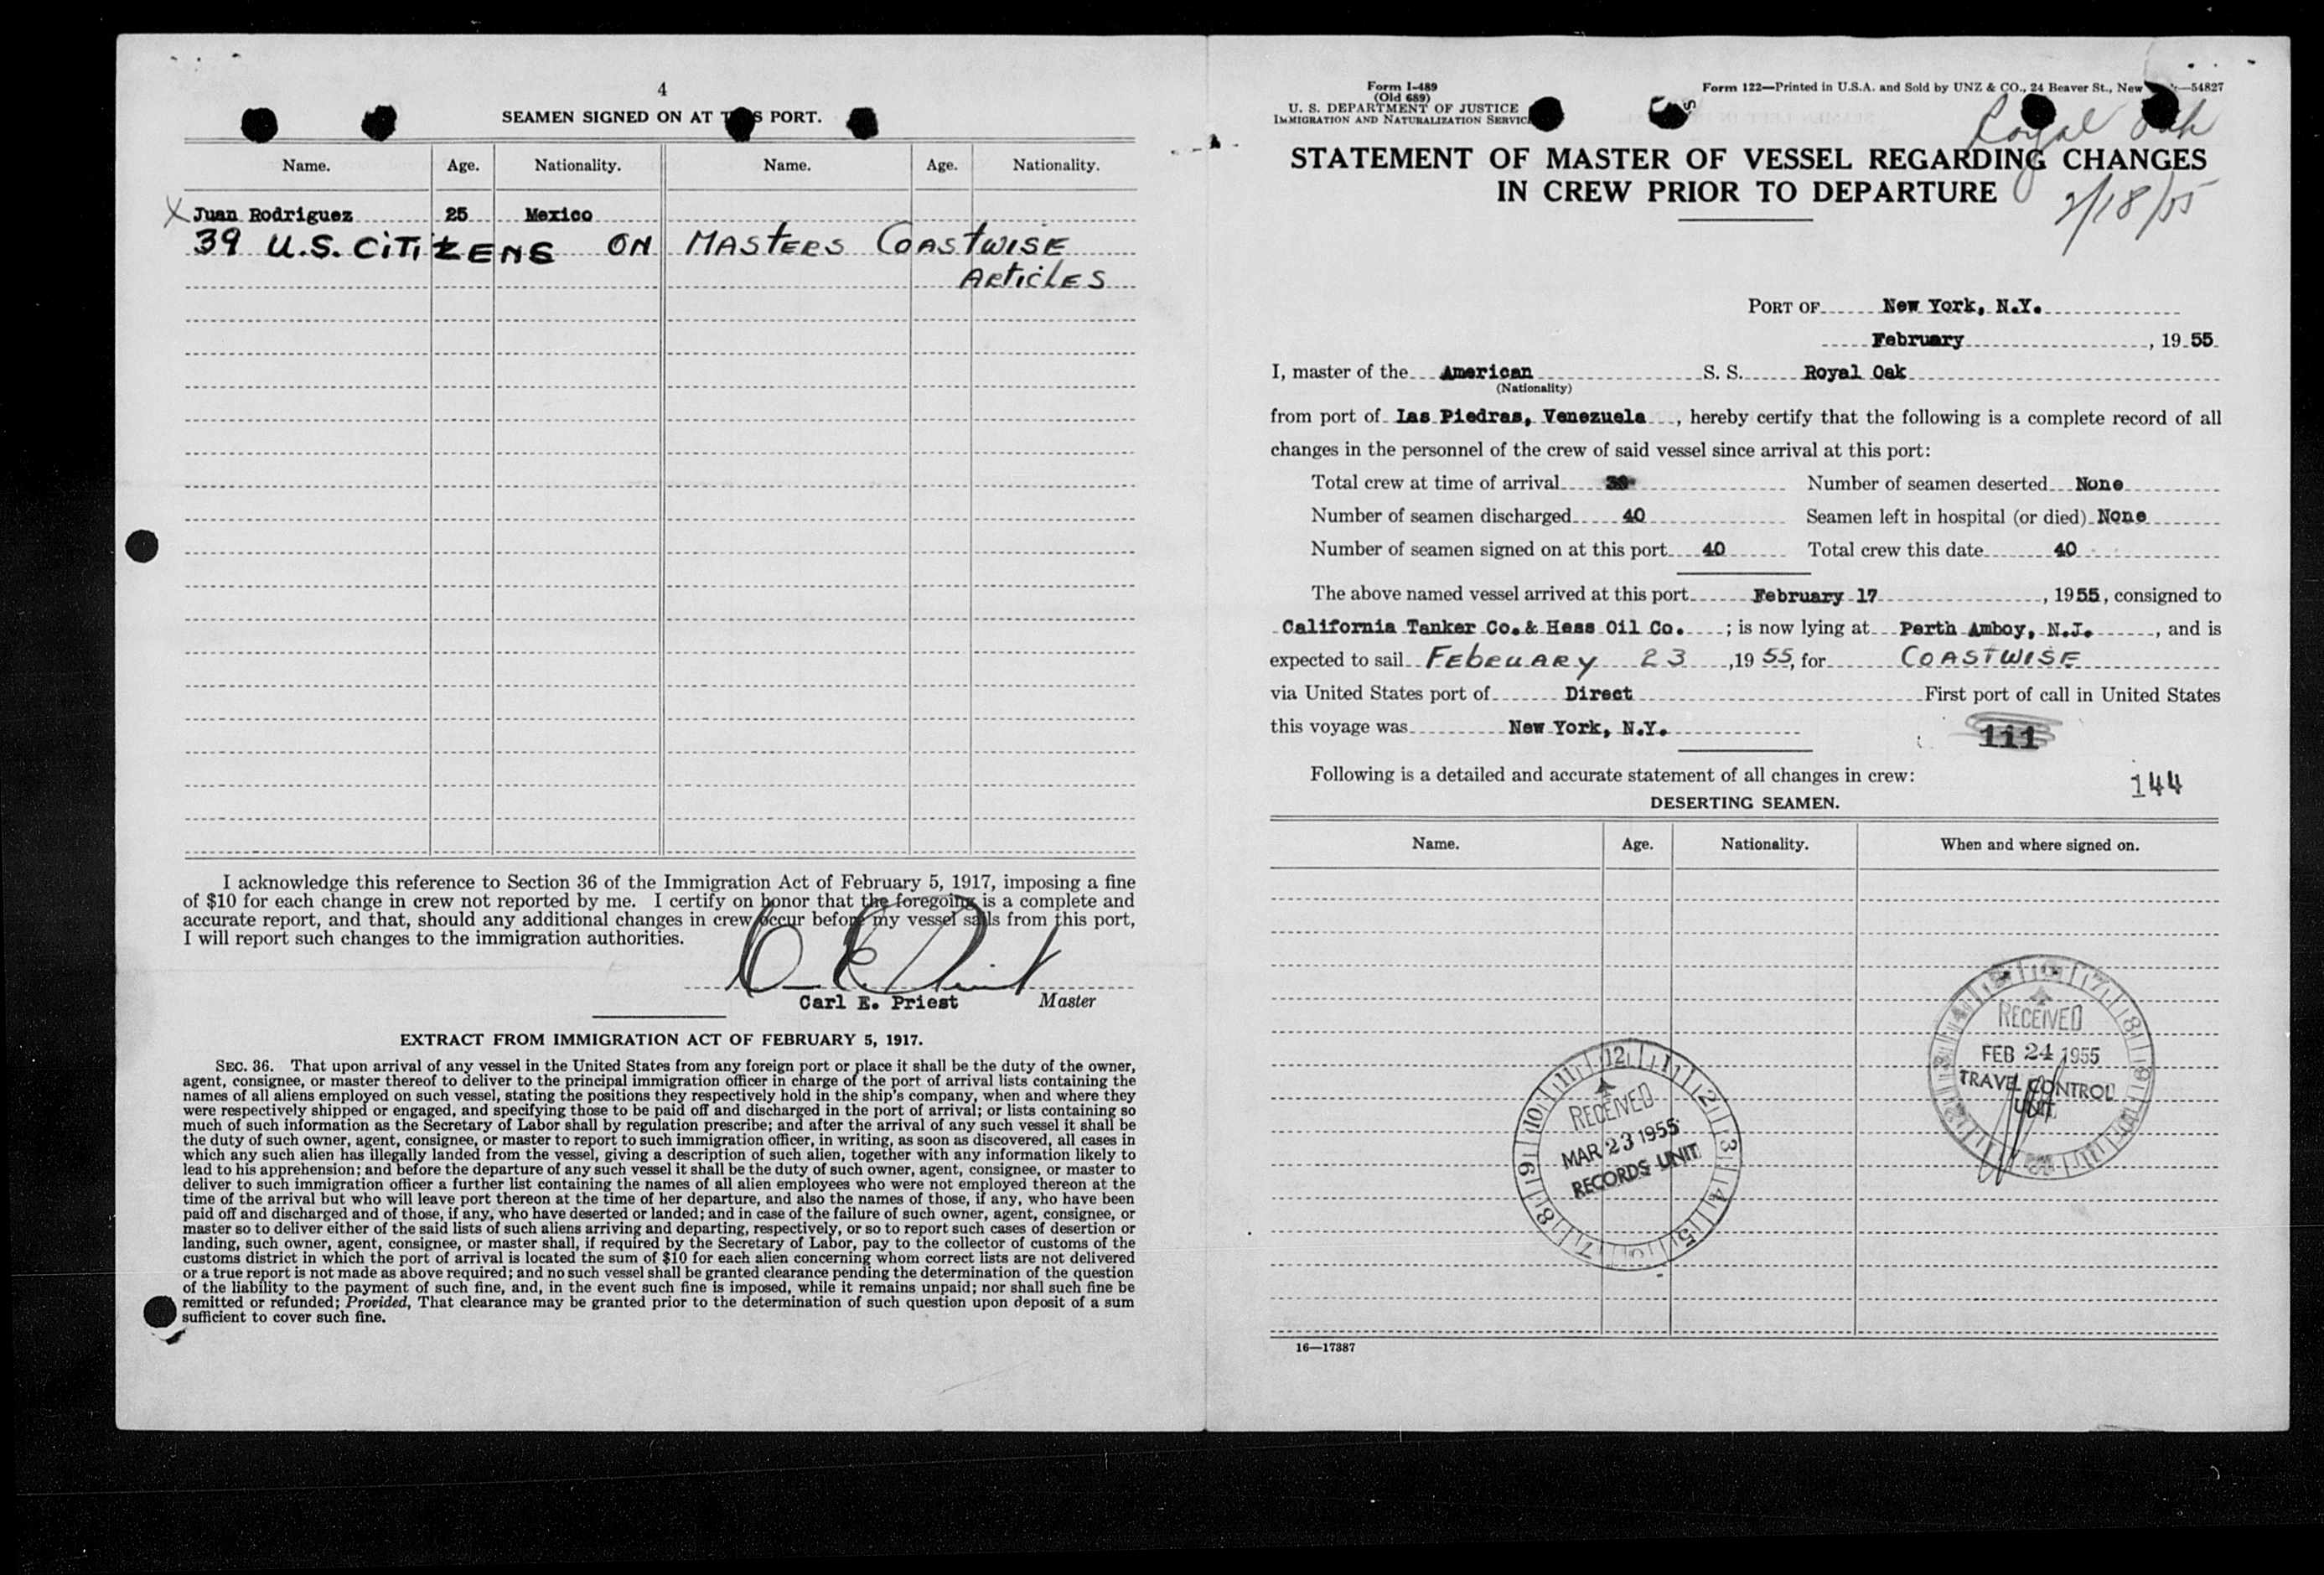 4
SEAMEN SIGNED ON AT THIS PORT.
Name. Age. Nationality. Name. Age. Nationality.
X Juan Rodriguez 25 Mexico
39 U.S. CITIZENS ON MASTERS COASTWISE
ARTICLES
I acknowledge this reference to Section 36 of the Immigration Act of February 5, 1917, imposing a fine
of $10 for each change in crew not reported by me. I certify on honor that the foregoing is a complete and
accurate report, and that, should any additional changes in crew occur before my vessel sails from this port,
I will report such changes to the immigration authorities.
Carl E. Priest Master
EXTRACT FROM IMMIGRATION ACT OF FEBRUARY 5, 1917.
SEC. 36. That upon arrival of any vessel in the United States from any foreign port or place it shall be the duty of the owner,
agent, consignee, or master thereof to deliver to the principal immigration officer in charge of the port of arrival lists containing the
names of all aliens employed on such vessel, stating the positions they respectively hold in the ship's company, when and where they
were respectively shipped or engaged, and specifying those to be paid off and discharged in the port of arrival; or lists containing so
much of such information as the Secretary of Labor shall by regulation prescribe; and after the arrival of any such vessel it shall be
the duty of such owner, agent, consignee, or master to report to such immigration officer, in writing, as soon as discovered, all cases in
which any such alien has illegally landed from the vessel, giving a description of such alien, together with any information likely to
lead to his apprehension; and before the departure of any such vessel it shall be the duty of such owner, agent, consignee, or master to
deliver to such immigration officer a further list containing the names of all alien employees who were not employed thereon at the
time of the arrival but who will leave port thereon at the time of her departure, and also the names of those, if any, who have been
paid off and discharged and of those, if any, who have deserted or landed; and in case of the failure of such owner, agent, consignee, or
master so to deliver either of the said lists of such aliens arriving and departing, respectively, or so to report such cases of desertion or
landing, such owner, agent, consignee, or master shall, if required by the Secretary of Labor, pay to the collector of customs of the
customs district in which the port of arrival is located the sum of $10 for each alien concerning whom correct lists are not delivered
or a true report is not made as above required; and no such vessel shall be granted clearance pending the determination of the question
of the liability to the payment of such fine, and, in the event such fine is imposed, while it remains unpaid; nor shall such fine be
remitted or refunded; Provided, That clearance may be granted prior to the determination of such question upon deposit of a sum
sufficient to cover such fine.
Form I-489
(Old 689)
U. S. DEPARTMENT OF JUSTICE
IMMIGRATION AND NATURALIZATION SERVICE
Form 122—Printed in U.S.A. and Sold by UNZ & CO., 24 Beaver St., New —54827
Royal Oak
STATEMENT OF MASTER OF VESSEL REGARDING CHANGES
IN CREW PRIOR TO DEPARTURE
2/18/55
PORT OF New York, N.Y.
February , 19 55
I, master of the American S. S. Royal Oak
(Nationality)
from port of Las Piedras, Venezuela , hereby certify that the following is a complete record of all
changes in the personnel of the crew of said vessel since arrival at this port:
Total crew at time of arrival Number of seamen deserted None
Number of seamen discharged 40 Seamen left in hospital (or died) None
Number of seamen signed on at this port 40 Total crew this date 40
The above named vessel arrived at this port February 17 , 1955, consigned to
California Tanker Co.& Hess Oil Co. ; is now lying at Perth Amboy, N.J. , and is
expected to sail FEBRUARY 23 ,19 55, for COASTWISE
via United States port of Direct First port of call in United States
this voyage was New York, N.Y.
111
Following is a detailed and accurate statement of all changes in crew:
144
DESERTING SEAMEN.
Name. Age. Nationality. When and where signed on.
RECEIVED
FEB 24 1955
TRAVEL CONTROL
UNIT
RECEIVED
MAR 23 1955
RECORDS UNIT
16—17387